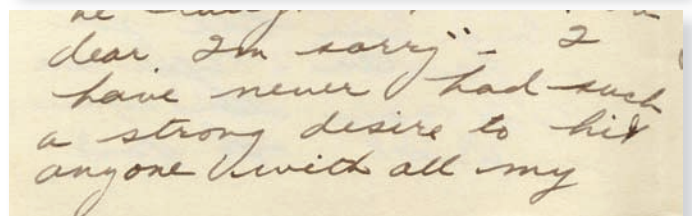 he
dear, I'm sorry" - I
have never had such
a strong desire to hit
anyone with all my